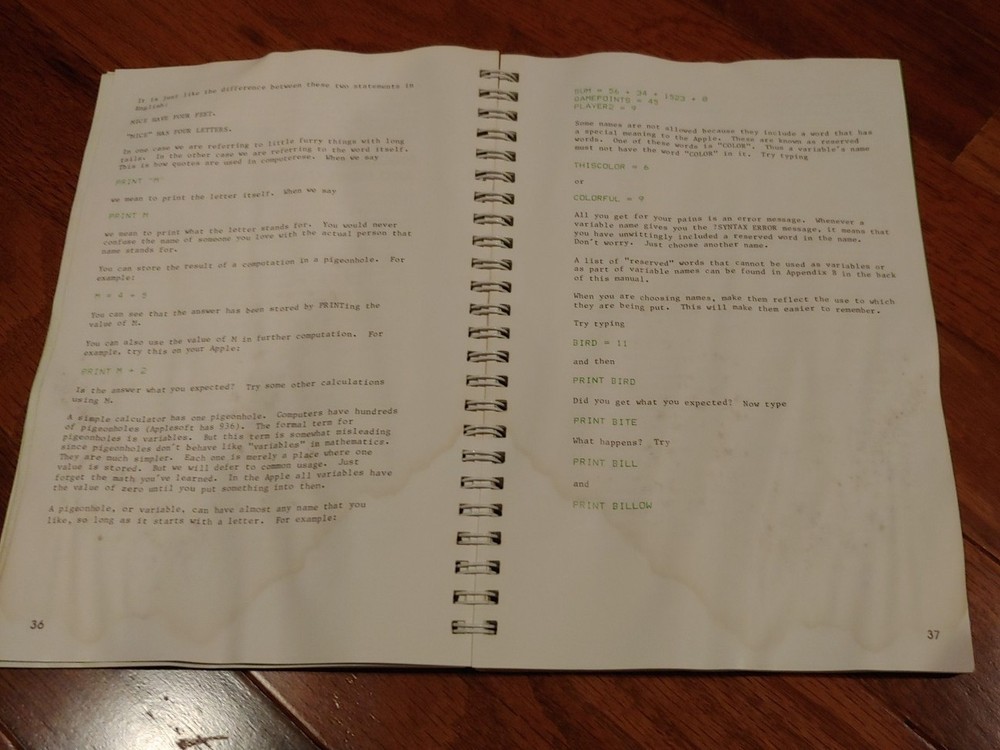 It is just like the difference between these two statements in
English:
MICE HAVE FOUR FEET.
"MICE" HAS FOUR LETTERS.
In one case we are referring to little furry things with long
tails. In the other case we are referring to the word itself.
This is how quotes are used in computerese. When we say
PRINT "M"
we mean to print the letter itself. When we say
PRINT M
we mean to print what the letter stands for. You would never
confuse the name of someone you love with the actual person that
name stands for.
You can store the result of a computation in a pigeonhole. For
example:
M = 4 + 5
You can see that the answer has been stored by PRINTing the
value of M.
You can also use the value of M in further computation. For
example, try this on your Apple:
PRINT M + 2
Is the answer what you expected? Try some other calculations
using M.
A simple calculator has one pigeonhole. Computers have hundreds
of pigeonholes (Applesoft has 936). The formal term for
pigeonholes is variables. But this term is somewhat misleading
since pigeonholes don't behave like "variables" in mathematics.
They are much simpler. Each one is merely a place where one
value is stored. But we will defer to common usage. Just
forget the math you've learned. In the Apple all variables have
the value of zero until you put something into them.
A pigeonhole, or variable, can have almost any name that you
like, so long as it starts with a letter. For example:
36
SUM = 56 + 34 + 1523 + 8
GAMEPOINTS = 45
PLAYER2 = 9
Some names are not allowed because they include a word that has
a special meaning to the Apple. These are known as reserved
words. One of these words is "COLOR". Thus a variable's name
must not have the word "COLOR" in it. Try typing
THISCOLOR = 6
or
COLORFUL = 9
All you get for your pains is an error message. Whenever a
variable name gives you the ?SYNTAX ERROR message, it means that
you have unwittingly included a reserved word in the name.
Don't worry. Just choose another name.
A list of "reserved" words that cannot be used as variables or
as part of variable names can be found in Appendix B in the back
of this manual.
When you are choosing names, make them reflect the use to which
they are being put. This will make them easier to remember.
Try typing
BIRD = 11
and then
PRINT BIRD
Did you get what you expected? Now type
PRINT BITE
What happens? Try
PRINT BILL
and
PRINT BILLOW
37